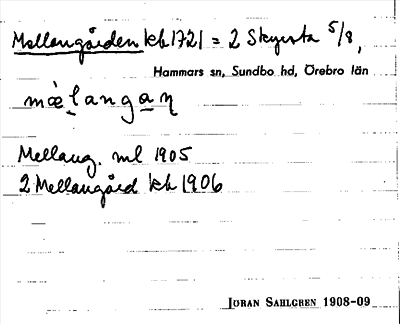 Mellangården kb 1721 = 2 Skyrsta 5/8,
Hammars sn, Sundbo hd, Örebro län
mæ̀langan̥
Mellang. ml 1905
2 Mellangård kb 1906
JÖRAN SAHLGREN 1908-09